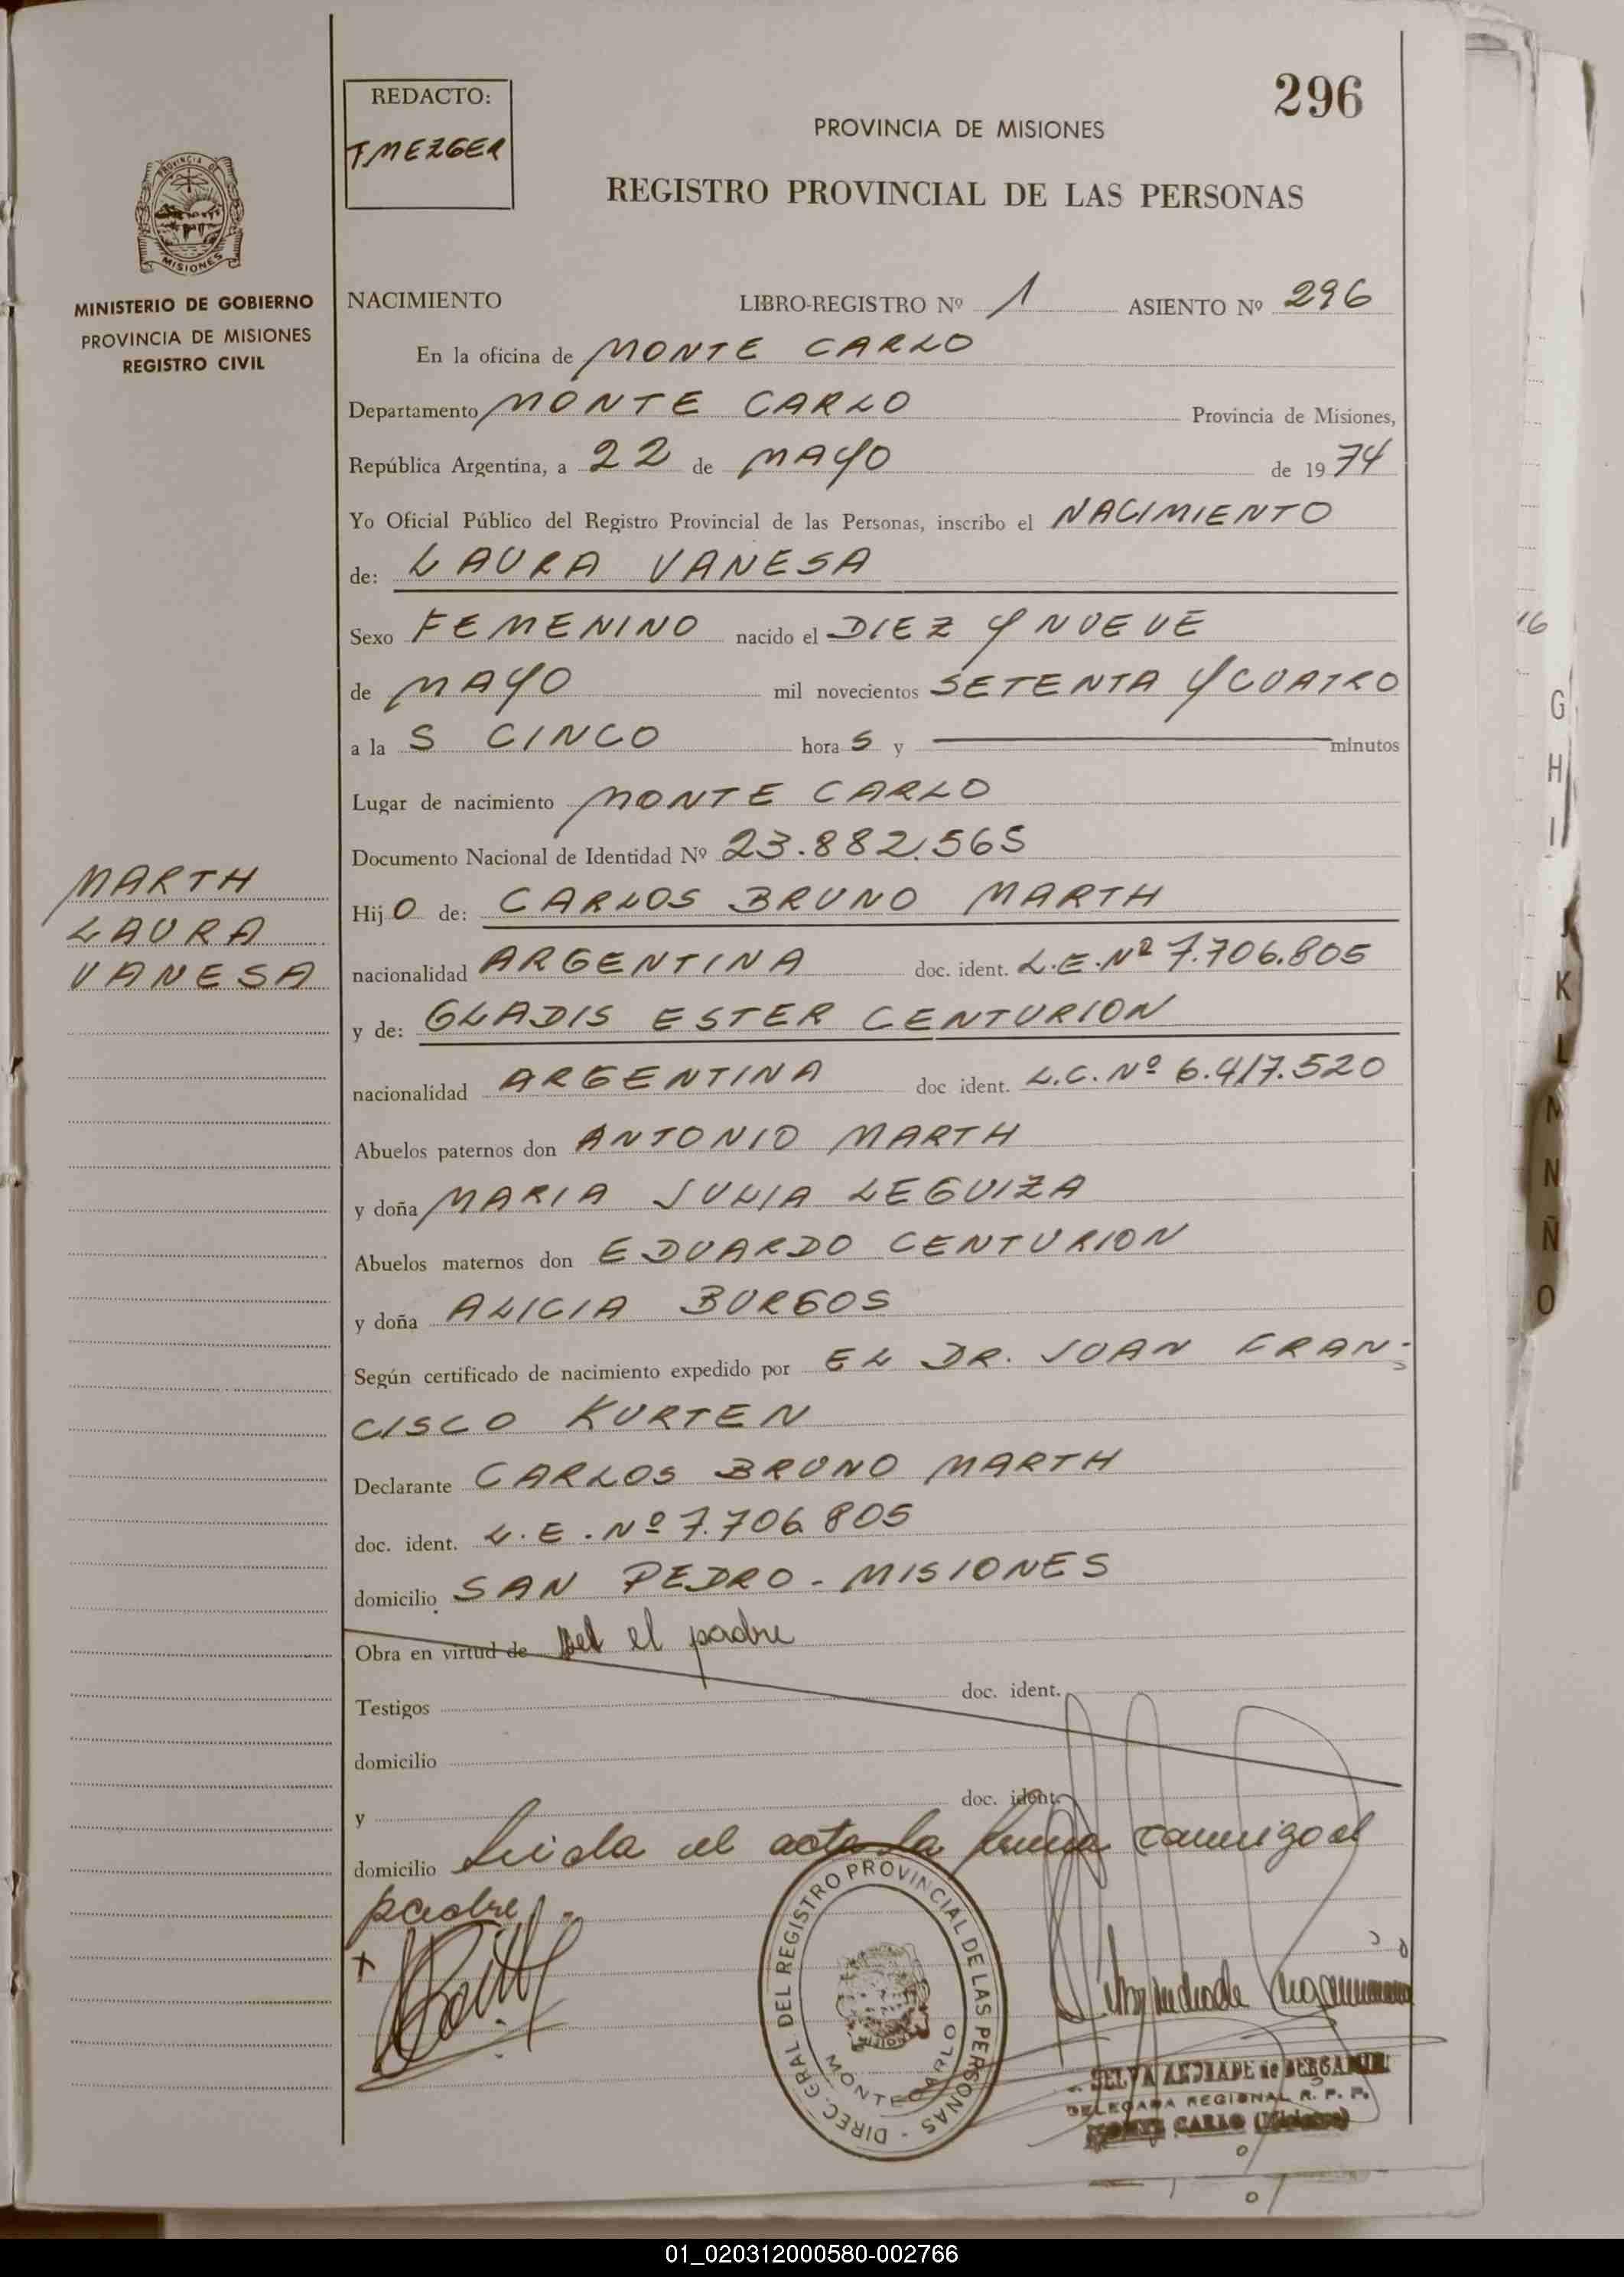 296
REDACTO:
T MEZGER
PROVINCIA DE MISIONES
REGISTRO PROVINCIAL DE LAS PERSONAS
PROVINCIA DE
MISIONES
MINISTERIO DE GOBIERNO
PROVINCIA DE MISIONES
REGISTRO CIVIL
NACIMIENTO LIBRO-REGISTRO Nº 1 ASIENTO Nº 296
En la oficina de MONTE CARLO
Departamento MONTE CARLO Provincia de Misiones,
República Argentina, a 22 de MAYO de 1974
Yo Oficial Público del Registro Provincial de las Personas, inscribo el NACIMIENTO
de: LAURA VANESA
Sexo FEMENINO nacido el DIEZ Y NUEVE
de MAYO mil novecientos SETENTA Y CUATRO
a la S CINCO hora S y minutos
Lugar de nacimiento MONTE CARLO
Documento Nacional de Identidad Nº 23.882.565
MARTH
LAURA
VANESA
Hij O de: CARLOS BRUNO MARTH
nacionalidad ARGENTINA doc. ident. L.E.Nº 7.706.805
y de: GLADIS ESTER CENTURION
nacionalidad ARGENTINA doc ident. L.C.Nº 6.417.520
Abuelos paternos don ANTONIO MARTH
y doña MARIA JULIA LEGUIZA
Abuelos maternos don EDUARDO CENTURION
y doña ALICIA BURGOS
Según certificado de nacimiento expedido por EL DR. JUAN FRAN-
CISCO KURTEN
Declarante CARLOS BRUNO MARTH
doc. ident. L.E.Nº 7.706.805
domicilio SAN PEDRO - MISIONES
Obra en virtud de el padre
Testigos doc. ident.
domicilio
y doc. ident.
domicilio Leida el acta la firma conmigo el
padre.-
DIREC. GRAL DEL REGISTRO PROVINCIAL DE LAS PERSONAS
MONTECARLO
SELVA ANDRADE de BERGAMIN
DELEGADA REGIONAL R. P. P.
MONTE CARLO (Misiones)
16
G
H
I
K
L
M
N
Ñ
O
01_020312000580-002766